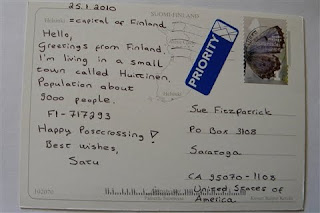 25.1.2010
SUOMI-FINLAND
=capital of Finland
Helsinki
Hello,
Greetings from Finland.
I'm living in a small
town called Huittinen.
Population about
9000 people.
FI-717293
Happy Postcrossing!
Best wishes,
Satu
PRIORITY
Sue Fitzpatrick
PO Box 3108
Saratoga
CA 95070-1108
United States of
America